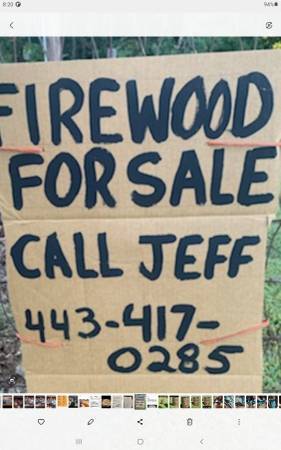 8:20
94%
FIREWOOD
FOR SALE
CALL JEFF
443-417-
0285